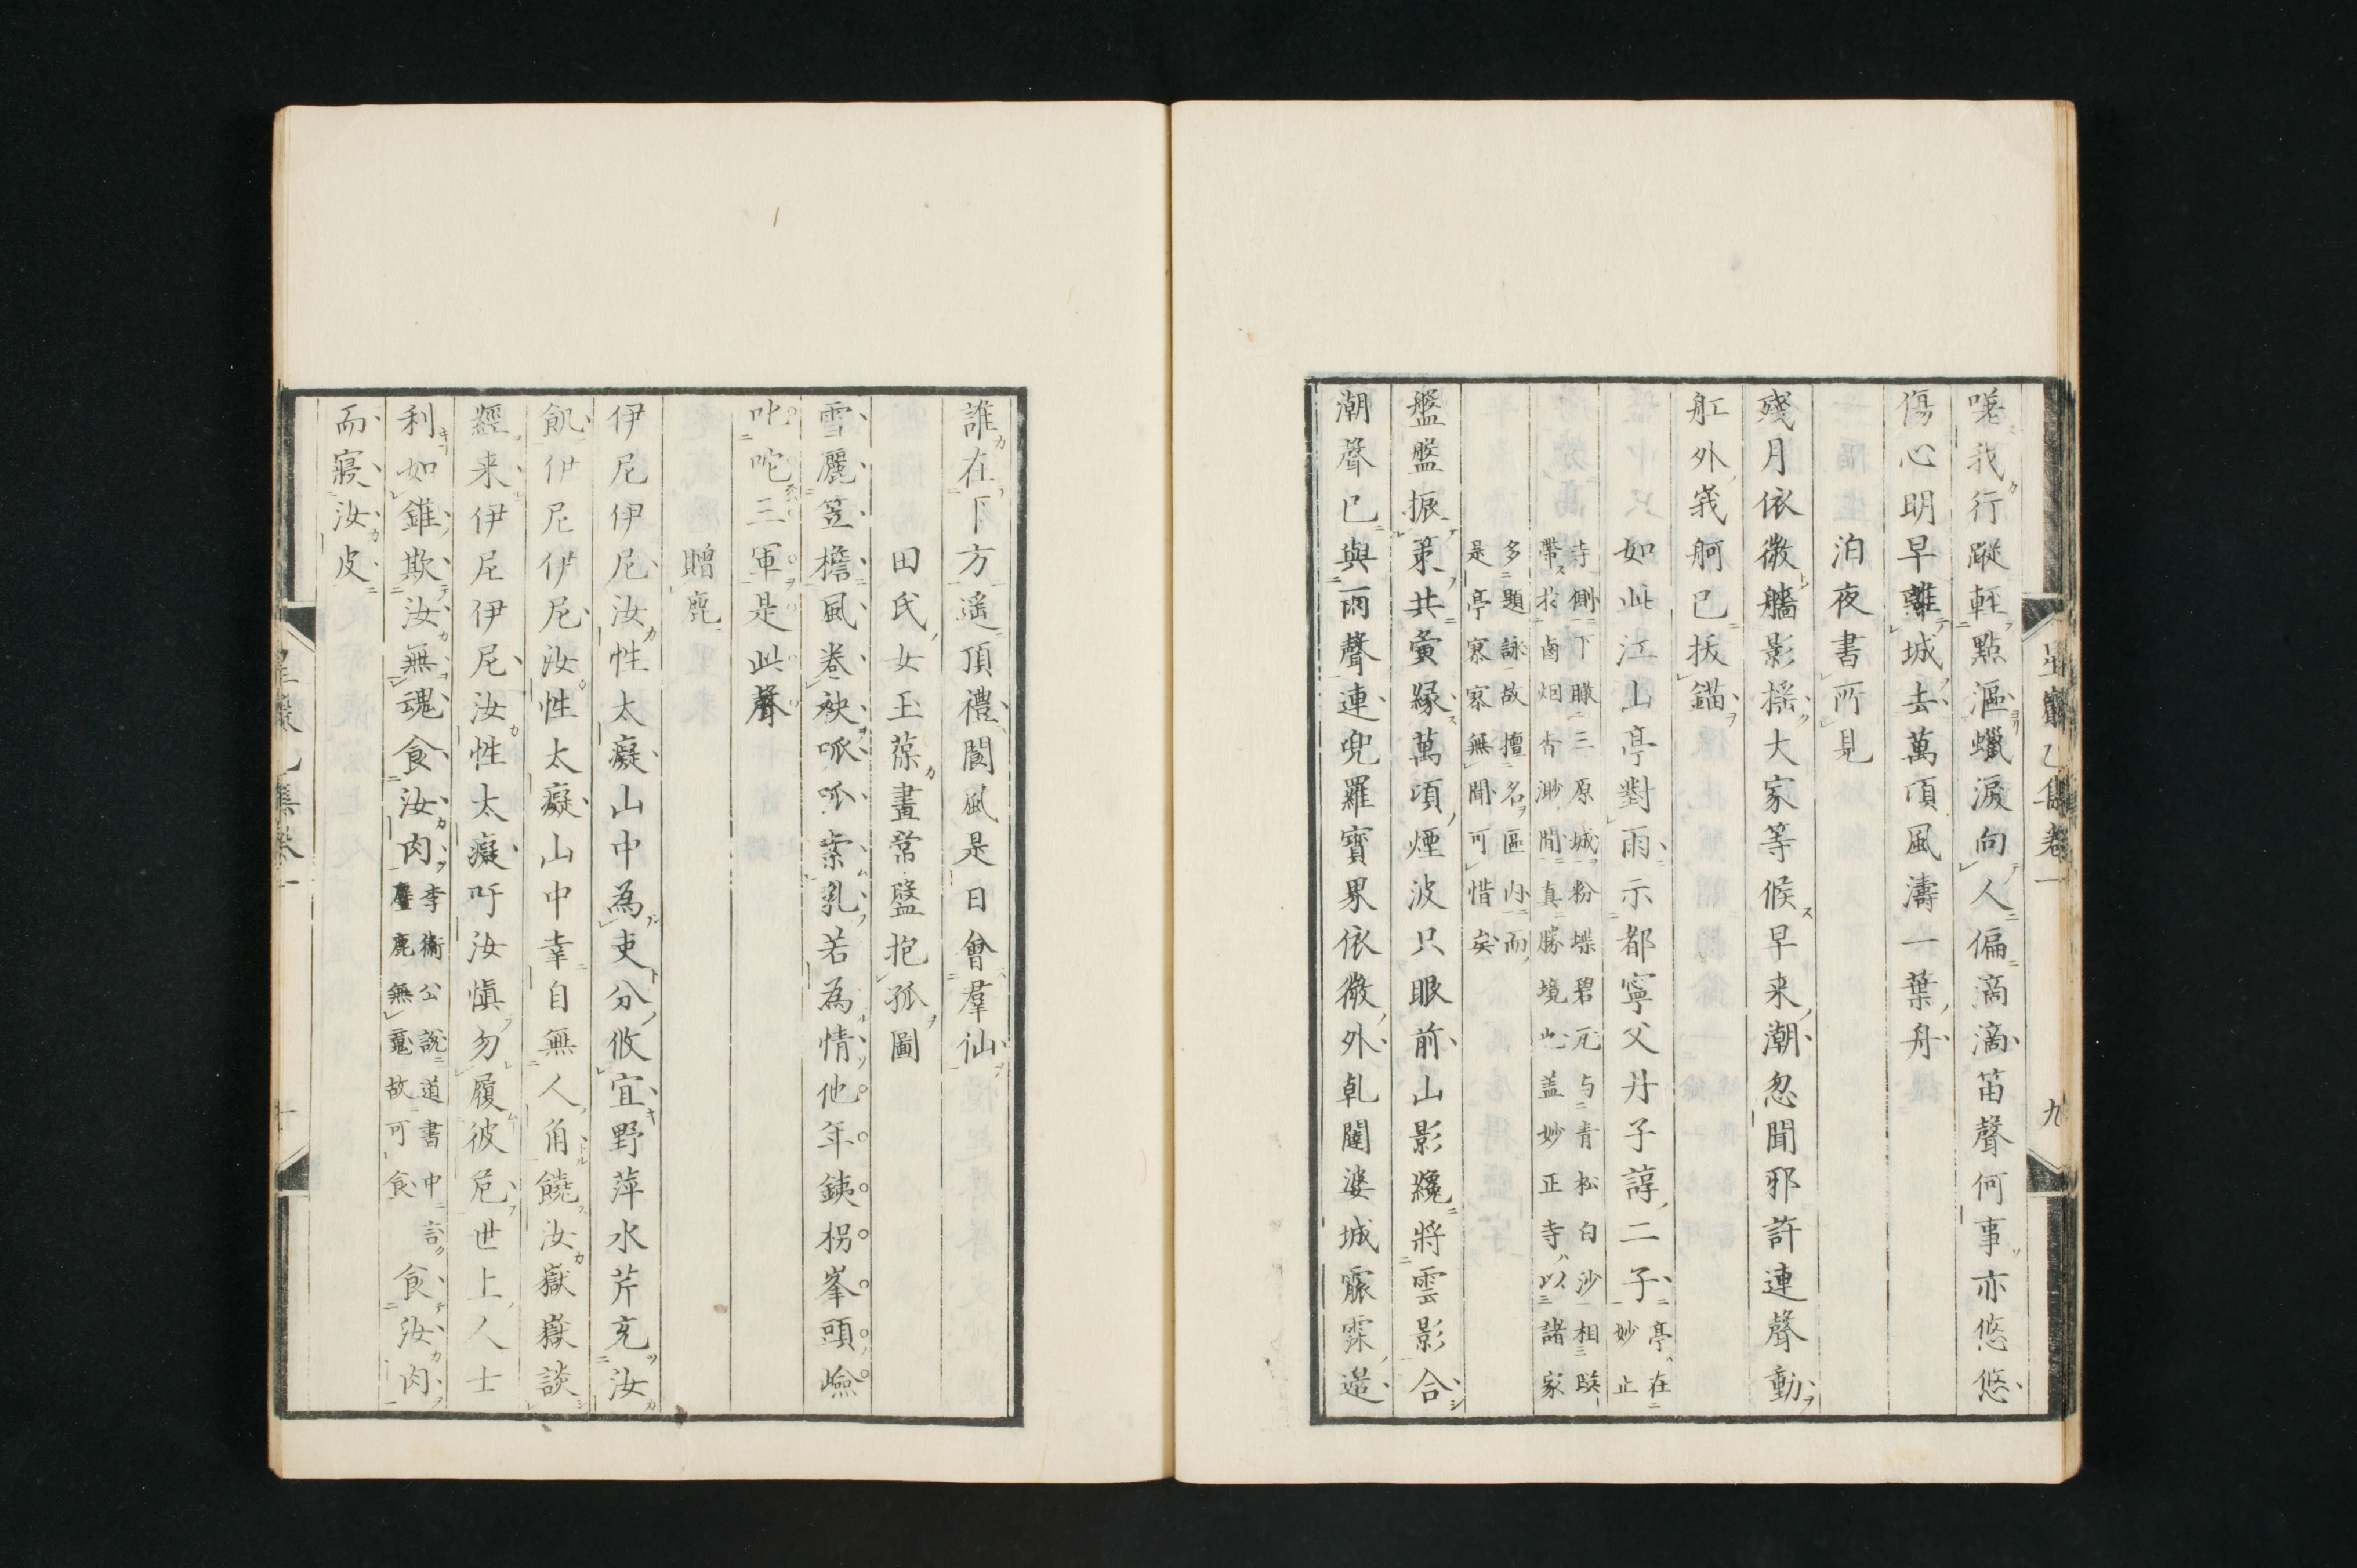 嗟我行蹤輕點漚蠟淚向人偏滴滴笛聲何事亦悠悠
傷心明早離城去萬頃風濤一葉舟
泊夜書所見
殘月依微艢影搖大家等候早来潮忽聞邪許連聲動
舡外峩舸已拔錨
如此江山亭對雨示都寧父丹子諄二子
亭在妙止
寺側下瞰三原城粉堞碧瓦与青松白沙相
帶求鹵烟杳渺間真勝境也盖妙正寺以諸家
多題詠故擅名區内而
是亭寥寥無聞可惜矣
盤盤振策共夤緣萬頃煙波只眼前山影纔將雲影合
潮聲已與雨聲連兜羅寶界依微外乹闥婆城霢霂邉
星巖乙集卷一
九
誰在下方遥頂禮閬風是日會羣仙
田氏女玉葆畫常盤抱孤圖
雪灑笠檐風卷袂呱呱索乳若為情他年鐵枴峯頭嶮
叱咤三軍是此聲
贈鹿
伊尼伊尼汝性太癡山中為吏分攸宜野萍水芹充汝
飢伊尼伊尼汝性太癡山中幸自無人角饒汝嶽嶽談
經来伊尼伊尼汝性太癡吁汝慎勿履彼危世上人士
利如錐欺汝無魂食汝肉
李衛公說道書中言
麞鹿無䰟故可食
食汝肉
而寢汝皮